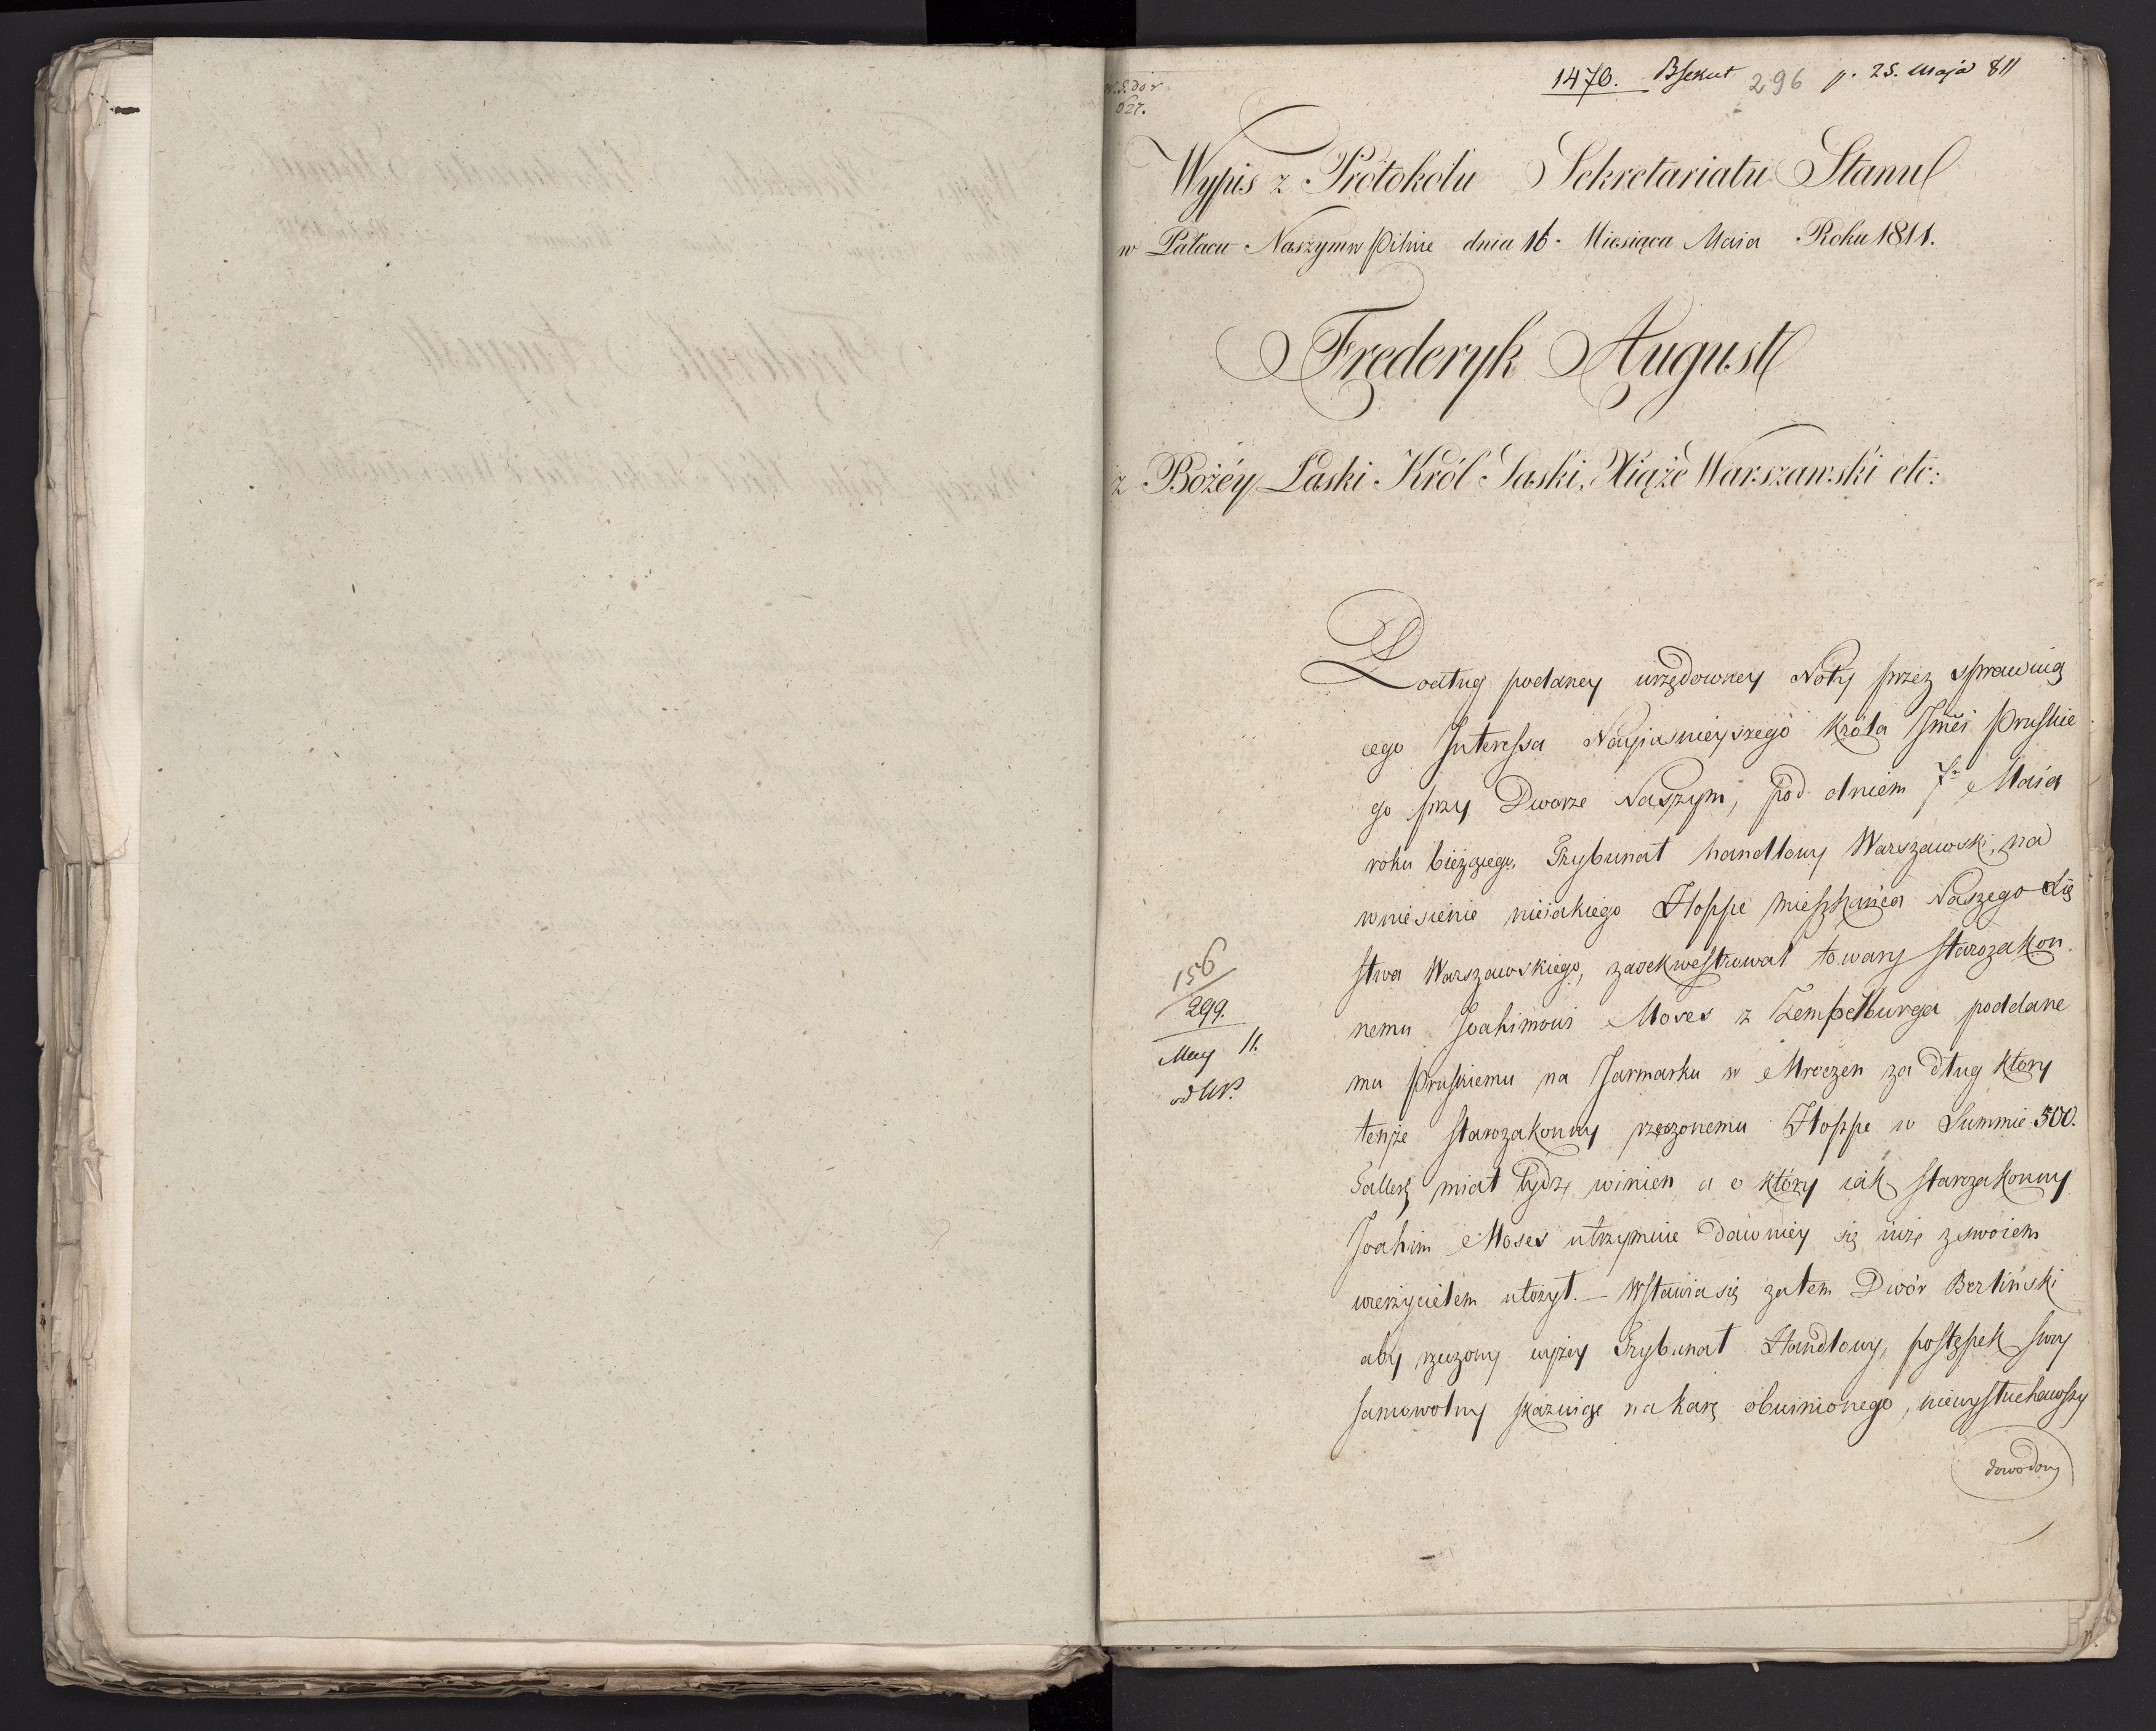 1470. 296 p. 25. Maja 811
Wypis z Protokołu Sekretariatu Stanu
w Pałacu Naszym w Pilnie dnia 16. Miesiąca Maia Roku 1811.
Frederyk August
z Bożéy Łaski Król Saski, Xiąże Warszawski etc:
Podług podaney urzędowney Noty przez sprawuią
cego Interessa Nayiaśnieyszego Króla Jmci Pruskie
go przy Dworze Naszym, pod dniem 7. Maia
roku bieżącego, Trybunał handlowy Warszawski, na
wniesienie nieiakiego Hoppe mieszkańca Naszego Xię
stwa Warszawskiego, zasekwestrował towary starozakon
nemu Joahimowi Moses z Zempelburga poddane
mu Pruskiemu na Jarmarku w Mroczen za dług ktory
tenże starozakonny rzeczonemu Hoppe w Summie 500.
Talleró miał bydź winien, a o który iak starozakonny
Joahim Moses utrzymuie dawniey się iuż z swoiem
wierzycielem ułożył. — Wstawia się zatem Dwór Berliński
aby rzeczony wyżey Trybunał Handlowy, postępek swoy
samowolny skazuiąc na karę obwinionego, niewysłuchawszy
dowodow
156
299.
May 11.